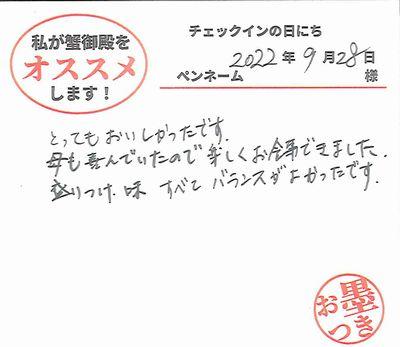 私が蟹御殿を
オススメ
します！
チェックインの日にち
2022年9月28日
ペンネーム 様
とってもおいしかったです。
母も喜んでいたので楽しくお食事できました。
盛りつけ、味 すべて バランスがよかったです。
お墨つき